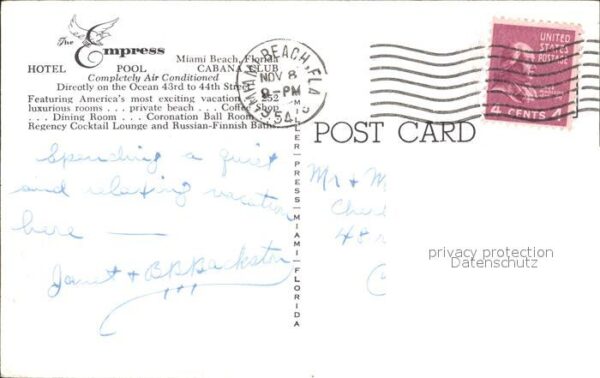 The Empress
Miami Beach, Florida
HOTEL POOL CABANA CLUB
Completely Air Conditioned
Directly on the Ocean 43rd to 44th Street
Featuring America's most exciting vacation 252
luxurious rooms . . . private beach . . . Coffee Shop
. . . Dining Room . . . Coronation Ball Room
Regency Cocktail Lounge and Russian-Finnish Baths
MIAMI BEACH, FLA.
NOV 8
9-PM
1954
UNITED
STATES
POSTAGE
4 CENTS 4
POST CARD
MILLER-PRESS-MIAMI-FLORIDA
Spending a quiet
and relaxing vacation
here —
Janet +
Mr + M
48
privacy protection
Datenschutz